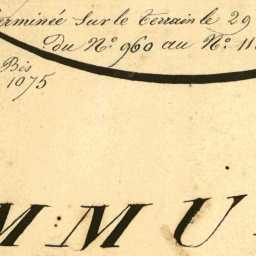 terminée sur le terrain le 29
du N° 960 au N° 11
Bis
1075
MMU